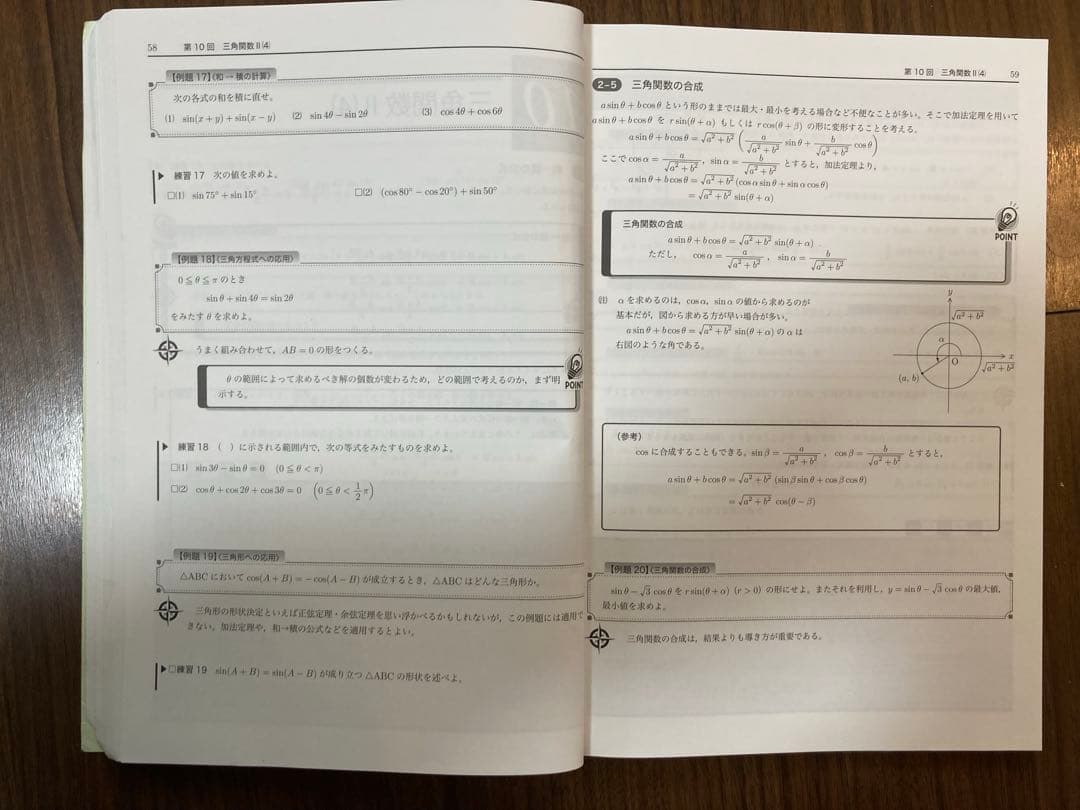 58 第10回 三角関数Ⅱ(4)
【例題17】〈和→積の計算〉
次の各式の和を積に直せ。
(1) sin(x+y)+sin(x−y) (2) sin4θ−sin2θ (3) cos4θ+cos6θ
▶ 練習17 次の値を求めよ。
□(1) sin75°+sin15° □(2) (cos80°−cos20°)+sin50°
【例題18】〈三角方程式への応用〉
0≦θ≦πのとき
sinθ+sin4θ=sin2θ
をみたすθを求めよ。
うまく組み合わせて，AB=0の形をつくる。
POINT
θの範囲によって求めるべき解の個数が変わるため，どの範囲で考えるのか，まず明
示する。
▶ 練習18 （ ）に示される範囲内で，次の等式をみたすものを求めよ。
□(1) sin3θ−sinθ=0 (0≦θ<π)
□(2) cosθ+cos2θ+cos3θ=0 (0≦θ<1/2π)
【例題19】〈三角形への応用〉
△ABCにおいてcos(A+B)=−cos(A−B)が成立するとき，△ABCはどんな三角形か。
三角形の形状決定といえば正弦定理・余弦定理を思い浮かべるかもしれないが，この例題には適用で
きない。加法定理や，和→積の公式などを適用するとよい。
▶□練習19 sin(A+B)=sin(A−B)が成り立つ△ABCの形状を述べよ。
第10回 三角関数Ⅱ(4) 59
2-5 三角関数の合成
asinθ+bcosθという形のままでは最大・最小を考える場合など不便なことが多い。そこで加法定理を用いて
asinθ+bcosθをrsin(θ+α)もしくはrcos(θ+β)の形に変形することを考える。
asinθ+bcosθ=√(a²+b²)(a/√(a²+b²) sinθ+b/√(a²+b²) cosθ)
ここでcosα=a/√(a²+b²)，sinα=b/√(a²+b²)とすると，加法定理より，
asinθ+bcosθ=√(a²+b²)(cosαsinθ+sinαcosθ)
=√(a²+b²)sin(θ+α)
POINT
三角関数の合成
asinθ+bcosθ=√(a²+b²)sin(θ+α)
ただし，cosα=a/√(a²+b²)，sinα=b/√(a²+b²)
(注) αを求めるのは，cosα，sinαの値から求めるのが
基本だが，図から求める方が早い場合が多い。
asinθ+bcosθ=√(a²+b²)sin(θ+α)のαは
右図のような角である。
y
√(a²+b²)
α
x
O
√(a²+b²)
(a, b)
（参考）
cosに合成することもできる。sinβ=a/√(a²+b²)，cosβ=b/√(a²+b²)とすると，
asinθ+bcosθ=√(a²+b²)(sinβsinθ+cosβcosθ)
=√(a²+b²)cos(θ−β)
【例題20】〈三角関数の合成〉
sinθ−√3cosθをrsin(θ+α)(r>0)の形にせよ。またそれを利用し，y=sinθ−√3cosθの最大値，
最小値を求めよ。
三角関数の合成は，結果よりも導き方が重要である。